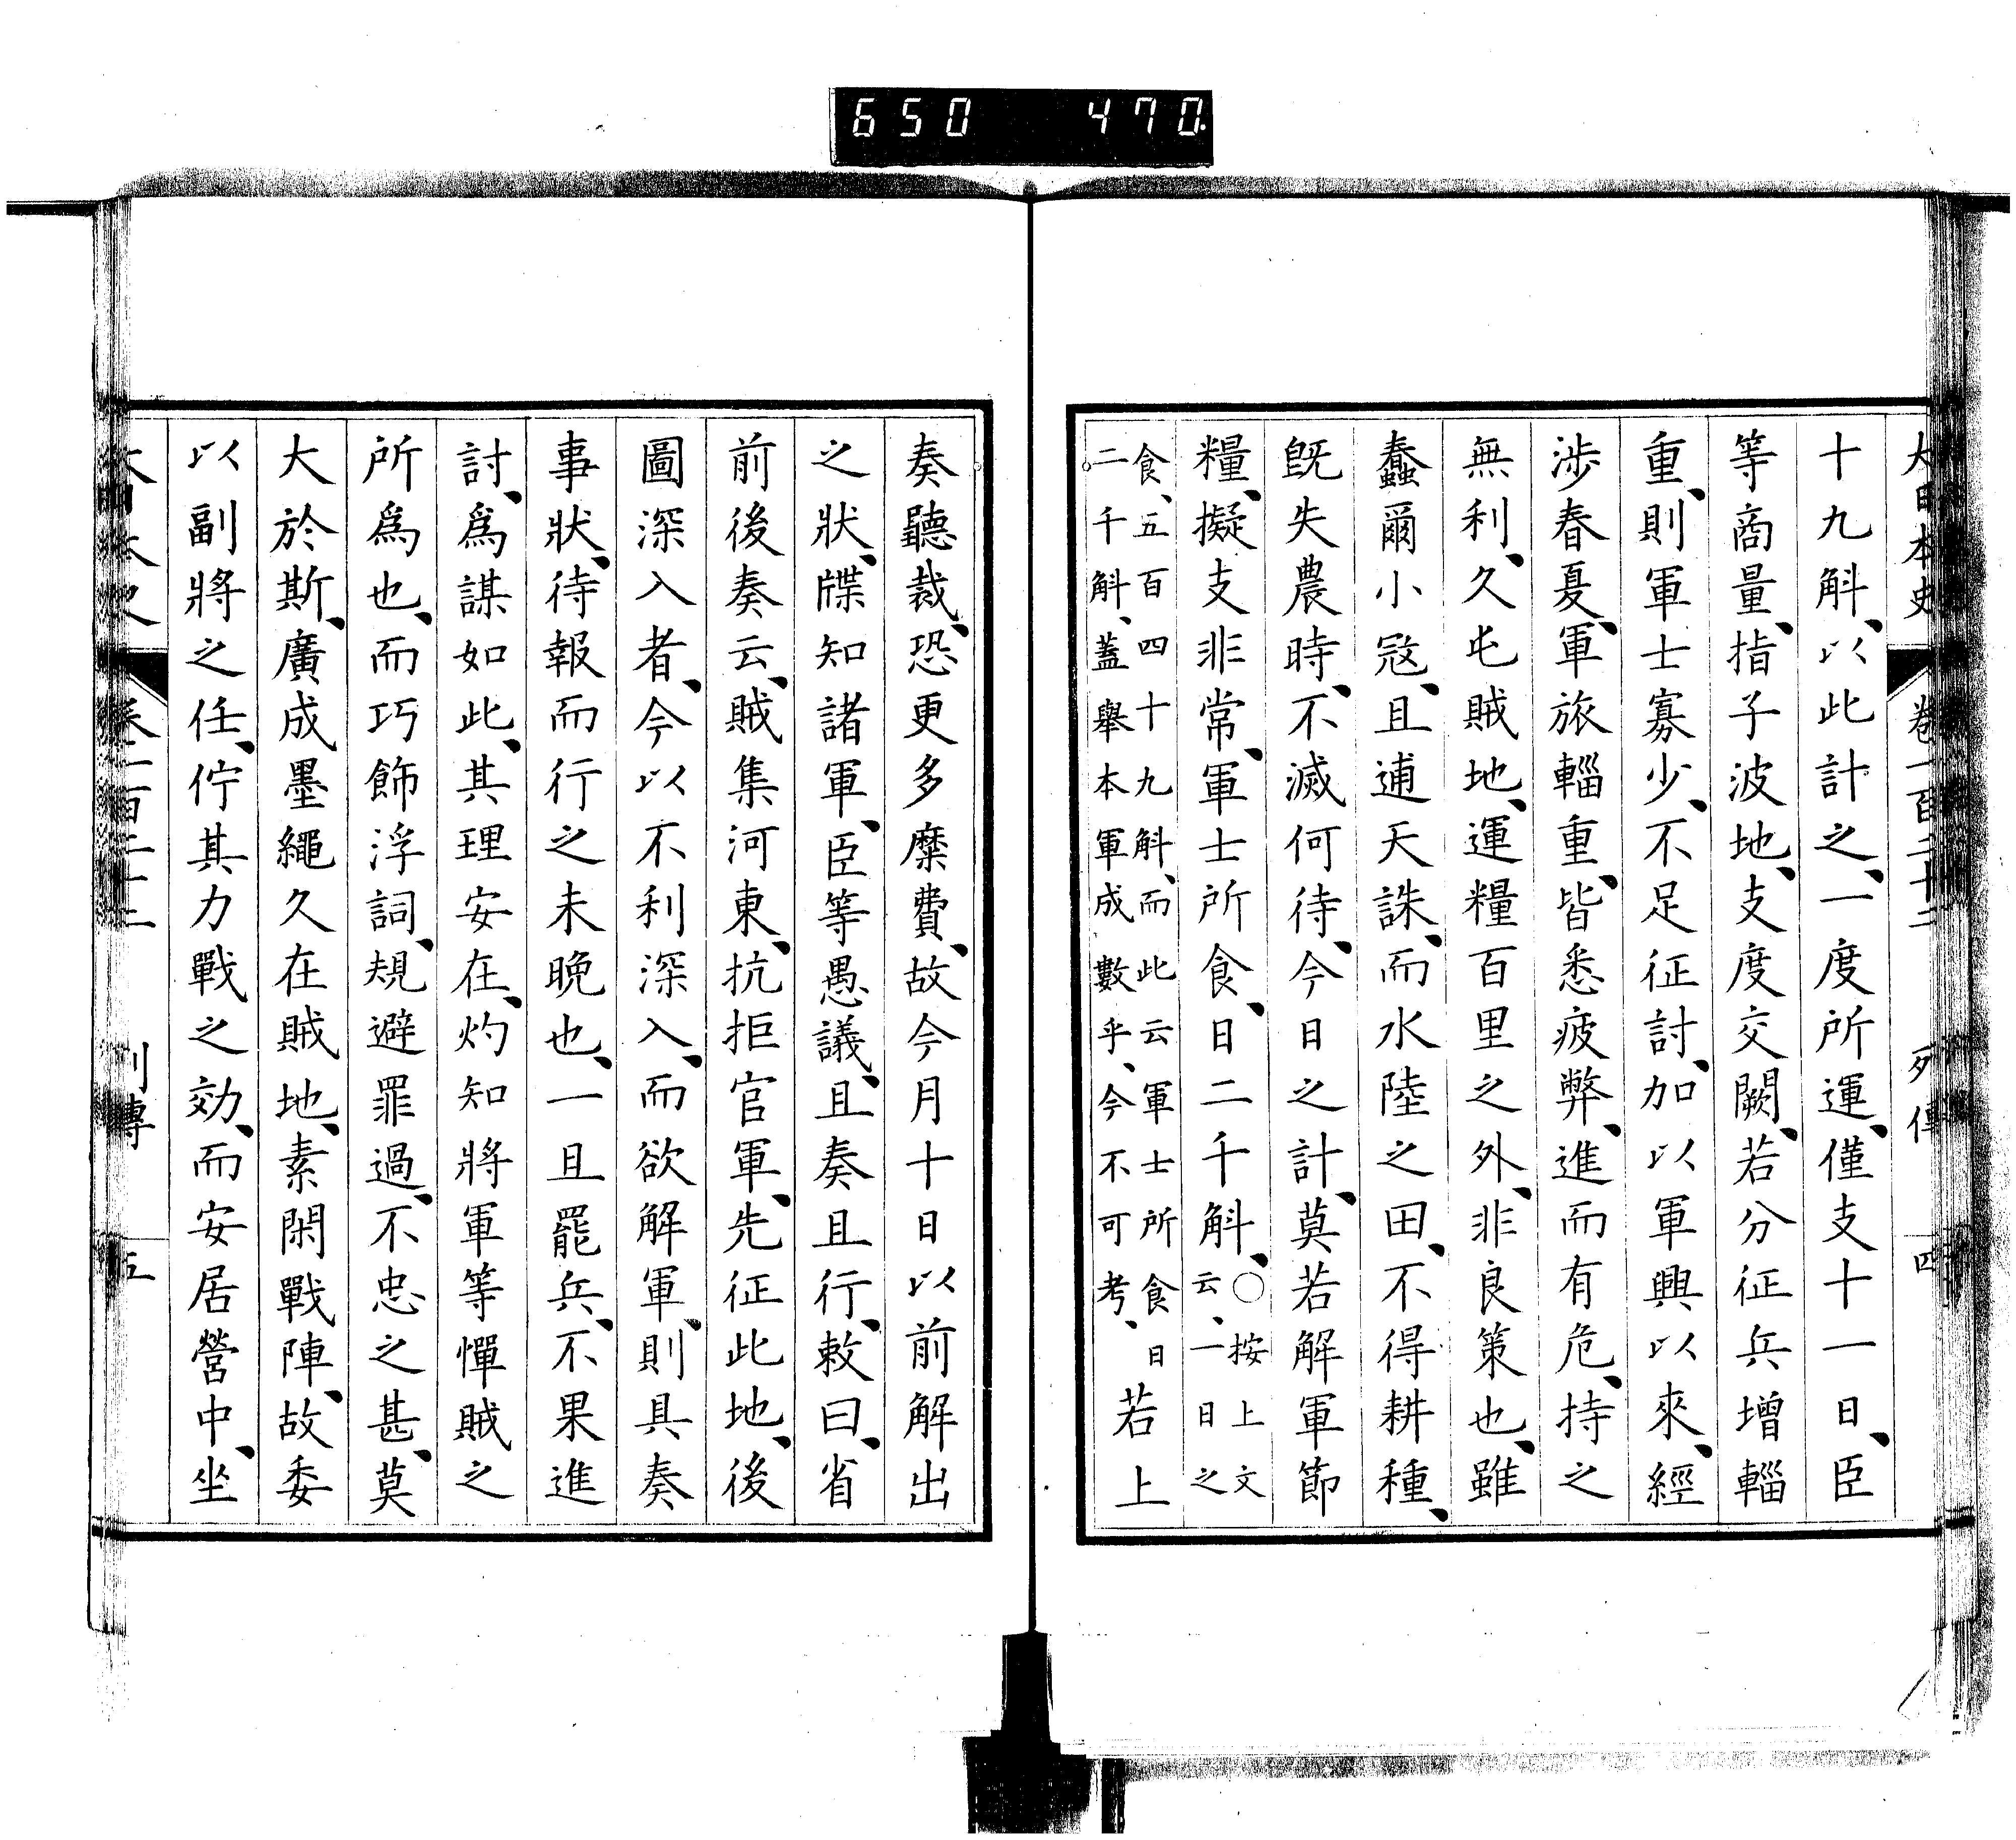 650 470
大日本史 卷一百二十二 列傳 四
十九斛、以此計之、一度所運、僅支十一日、臣
等商量、指子波地、支度交闕、若分征兵增輜
重、則軍士寡少、不足征討、加以軍興以來、經
涉春夏、軍旅輜重、皆悉疲弊、進而有危、持之
無利、久屯賊地、運糧百里之外、非良策也、雖
蠢爾小冦、且逋天誅、而水陸之田、不得耕種、
既失農時、不滅何待、今日之計、莫若解軍節
糧、擬支非常、軍士所食、日二千斛、○按上文
云、一日之
食、五百四十九斛、而此云軍士所食日
二千斛、蓋舉本軍成數乎、今不可考、若上
奏聽裁、恐更多糜費、故今月十日以前解出
之狀、牒知諸軍、臣等愚議、且奏且行、敕曰、省
前後奏云、賊集河東、抗拒官軍、先征此地、後
圖深入者、今以不利深入、而欲解軍、則具奏
事狀、待報而行之未晚也、一旦罷兵、不果進
討、爲謀如此、其理安在、灼知將軍等憚賊之
所爲也、而巧飾浮詞、規避罪過、不忠之甚、莫
大於斯、廣成墨繩久在賊地、素閑戰陣、故委
以副將之任、佇其力戰之効、而安居營中、坐
大日本史 卷一百二十二 列傳 五